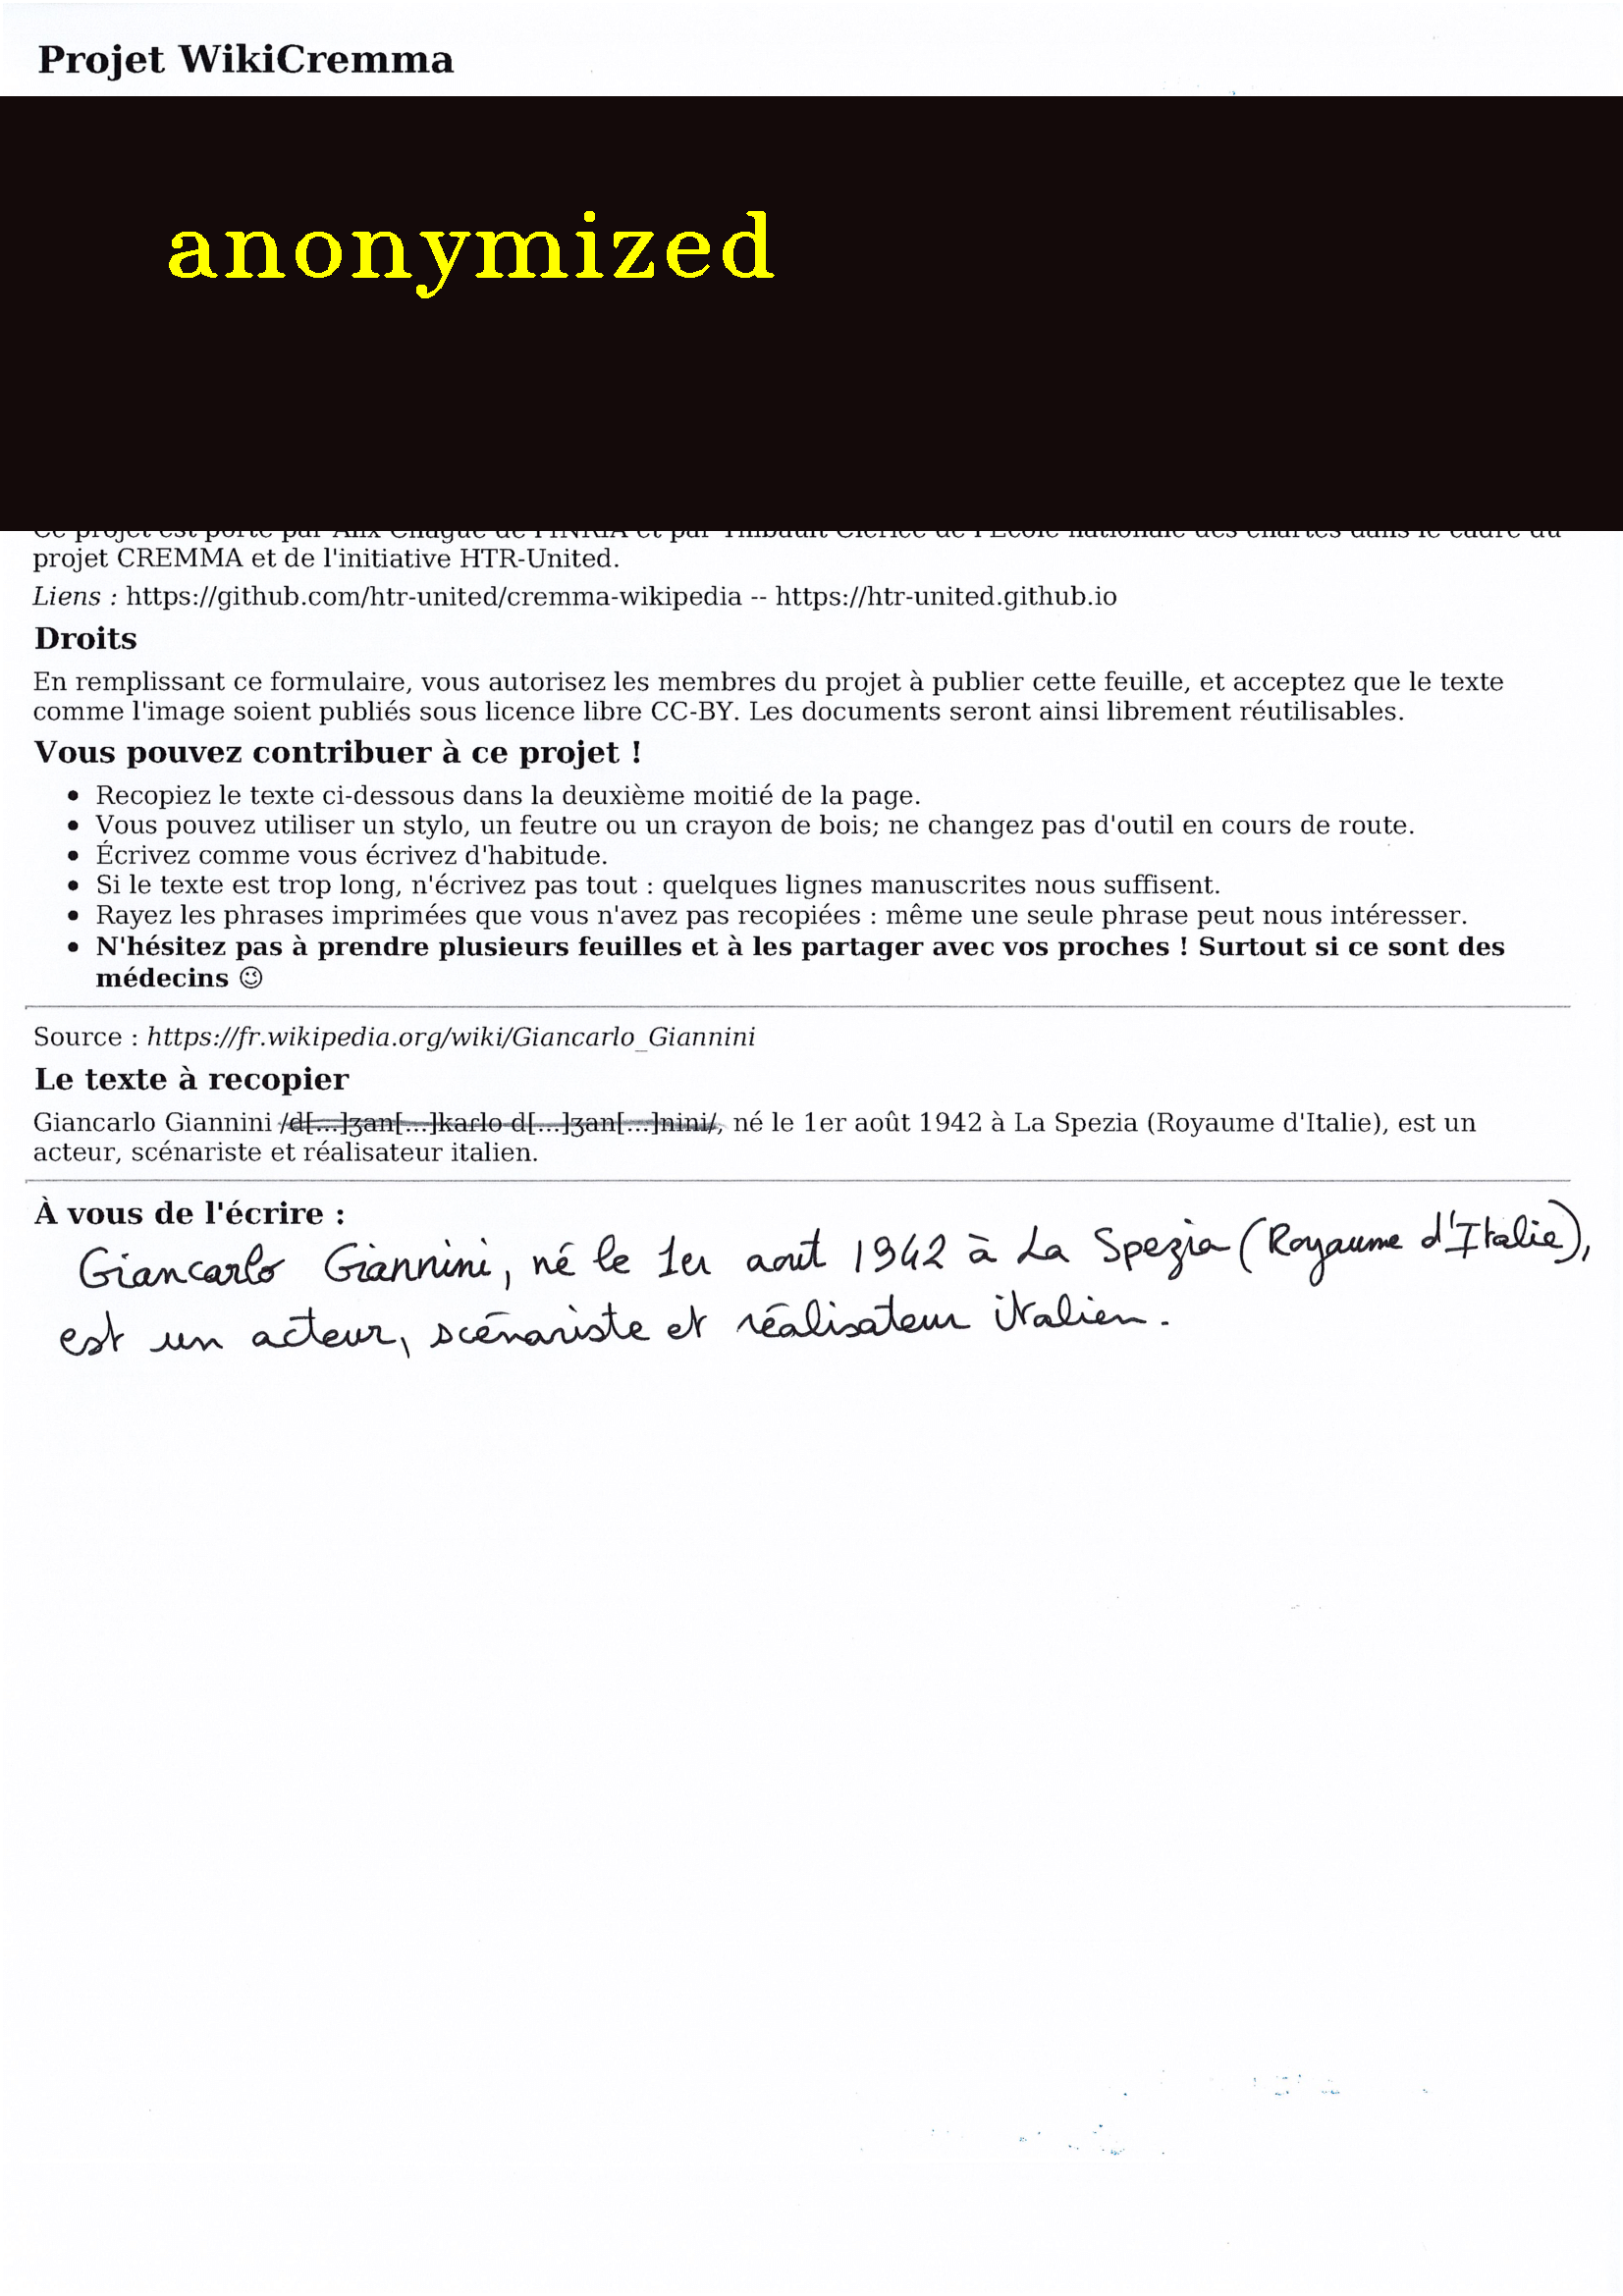 Projet WikiCremma
anonymized
Ce projet est porté par Alix Chagué de l'INRIA et par Thibault Clérice de l'École nationale des chartes dans le cadre du
projet CREMMA et de l'initiative HTR-United.
Liens : https://github.com/htr-united/cremma-wikipedia -- https://htr-united.github.io
Droits
En remplissant ce formulaire, vous autorisez les membres du projet à publier cette feuille, et acceptez que le texte
comme l'image soient publiés sous licence libre CC-BY. Les documents seront ainsi librement réutilisables.
Vous pouvez contribuer à ce projet !
• Recopiez le texte ci-dessous dans la deuxième moitié de la page.
• Vous pouvez utiliser un stylo, un feutre ou un crayon de bois; ne changez pas d'outil en cours de route.
• Écrivez comme vous écrivez d'habitude.
• Si le texte est trop long, n'écrivez pas tout : quelques lignes manuscrites nous suffisent.
• Rayez les phrases imprimées que vous n'avez pas recopiées : même une seule phrase peut nous intéresser.
• N'hésitez pas à prendre plusieurs feuilles et à les partager avec vos proches ! Surtout si ce sont des
médecins 😉
Source : https://fr.wikipedia.org/wiki/Giancarlo_Giannini
Le texte à recopier
Giancarlo Giannini /d[...]ʒan[...]karlo d[...]ʒan[...]nini/, né le 1er août 1942 à La Spezia (Royaume d'Italie), est un
acteur, scénariste et réalisateur italien.
À vous de l'écrire :
Giancarlo Giannini, né le 1er aout 1942 à La Spezia (Royaume d'Italie),
est un acteur, scénariste et réalisateur italien.